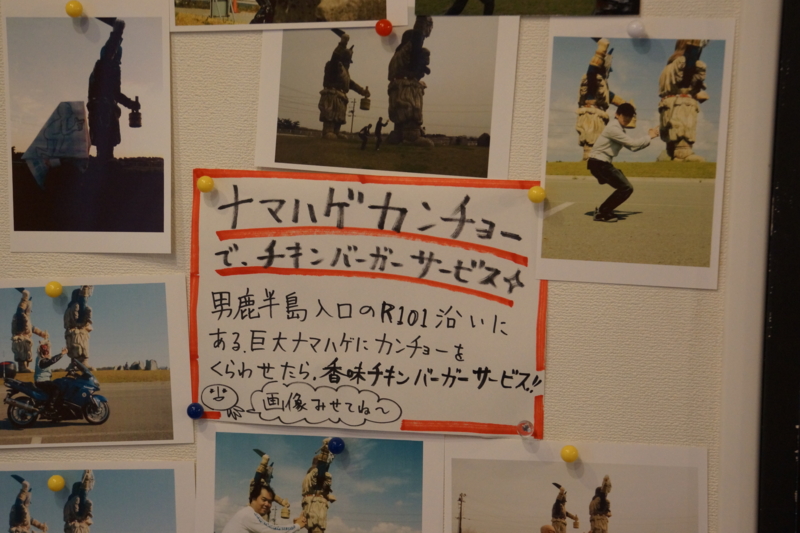 ナマハゲカンチョー
で、チキンバーガーサービス☆
男鹿半島入口のR101沿いに
ある、巨大ナマハゲにカンチョーを
くらわせたら、香味チキンバーガーサービス!!
画像みせてね〜